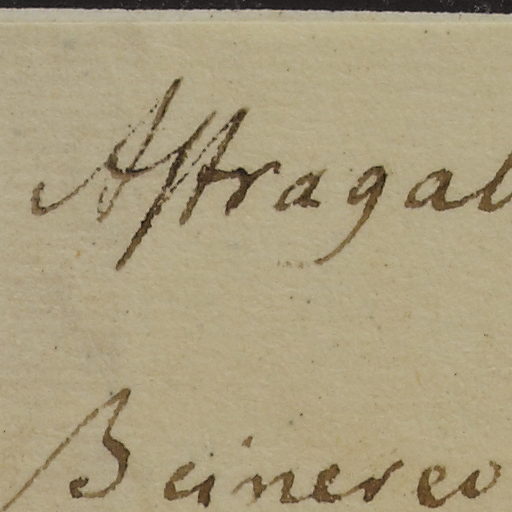 Aſtragal
B cinereo